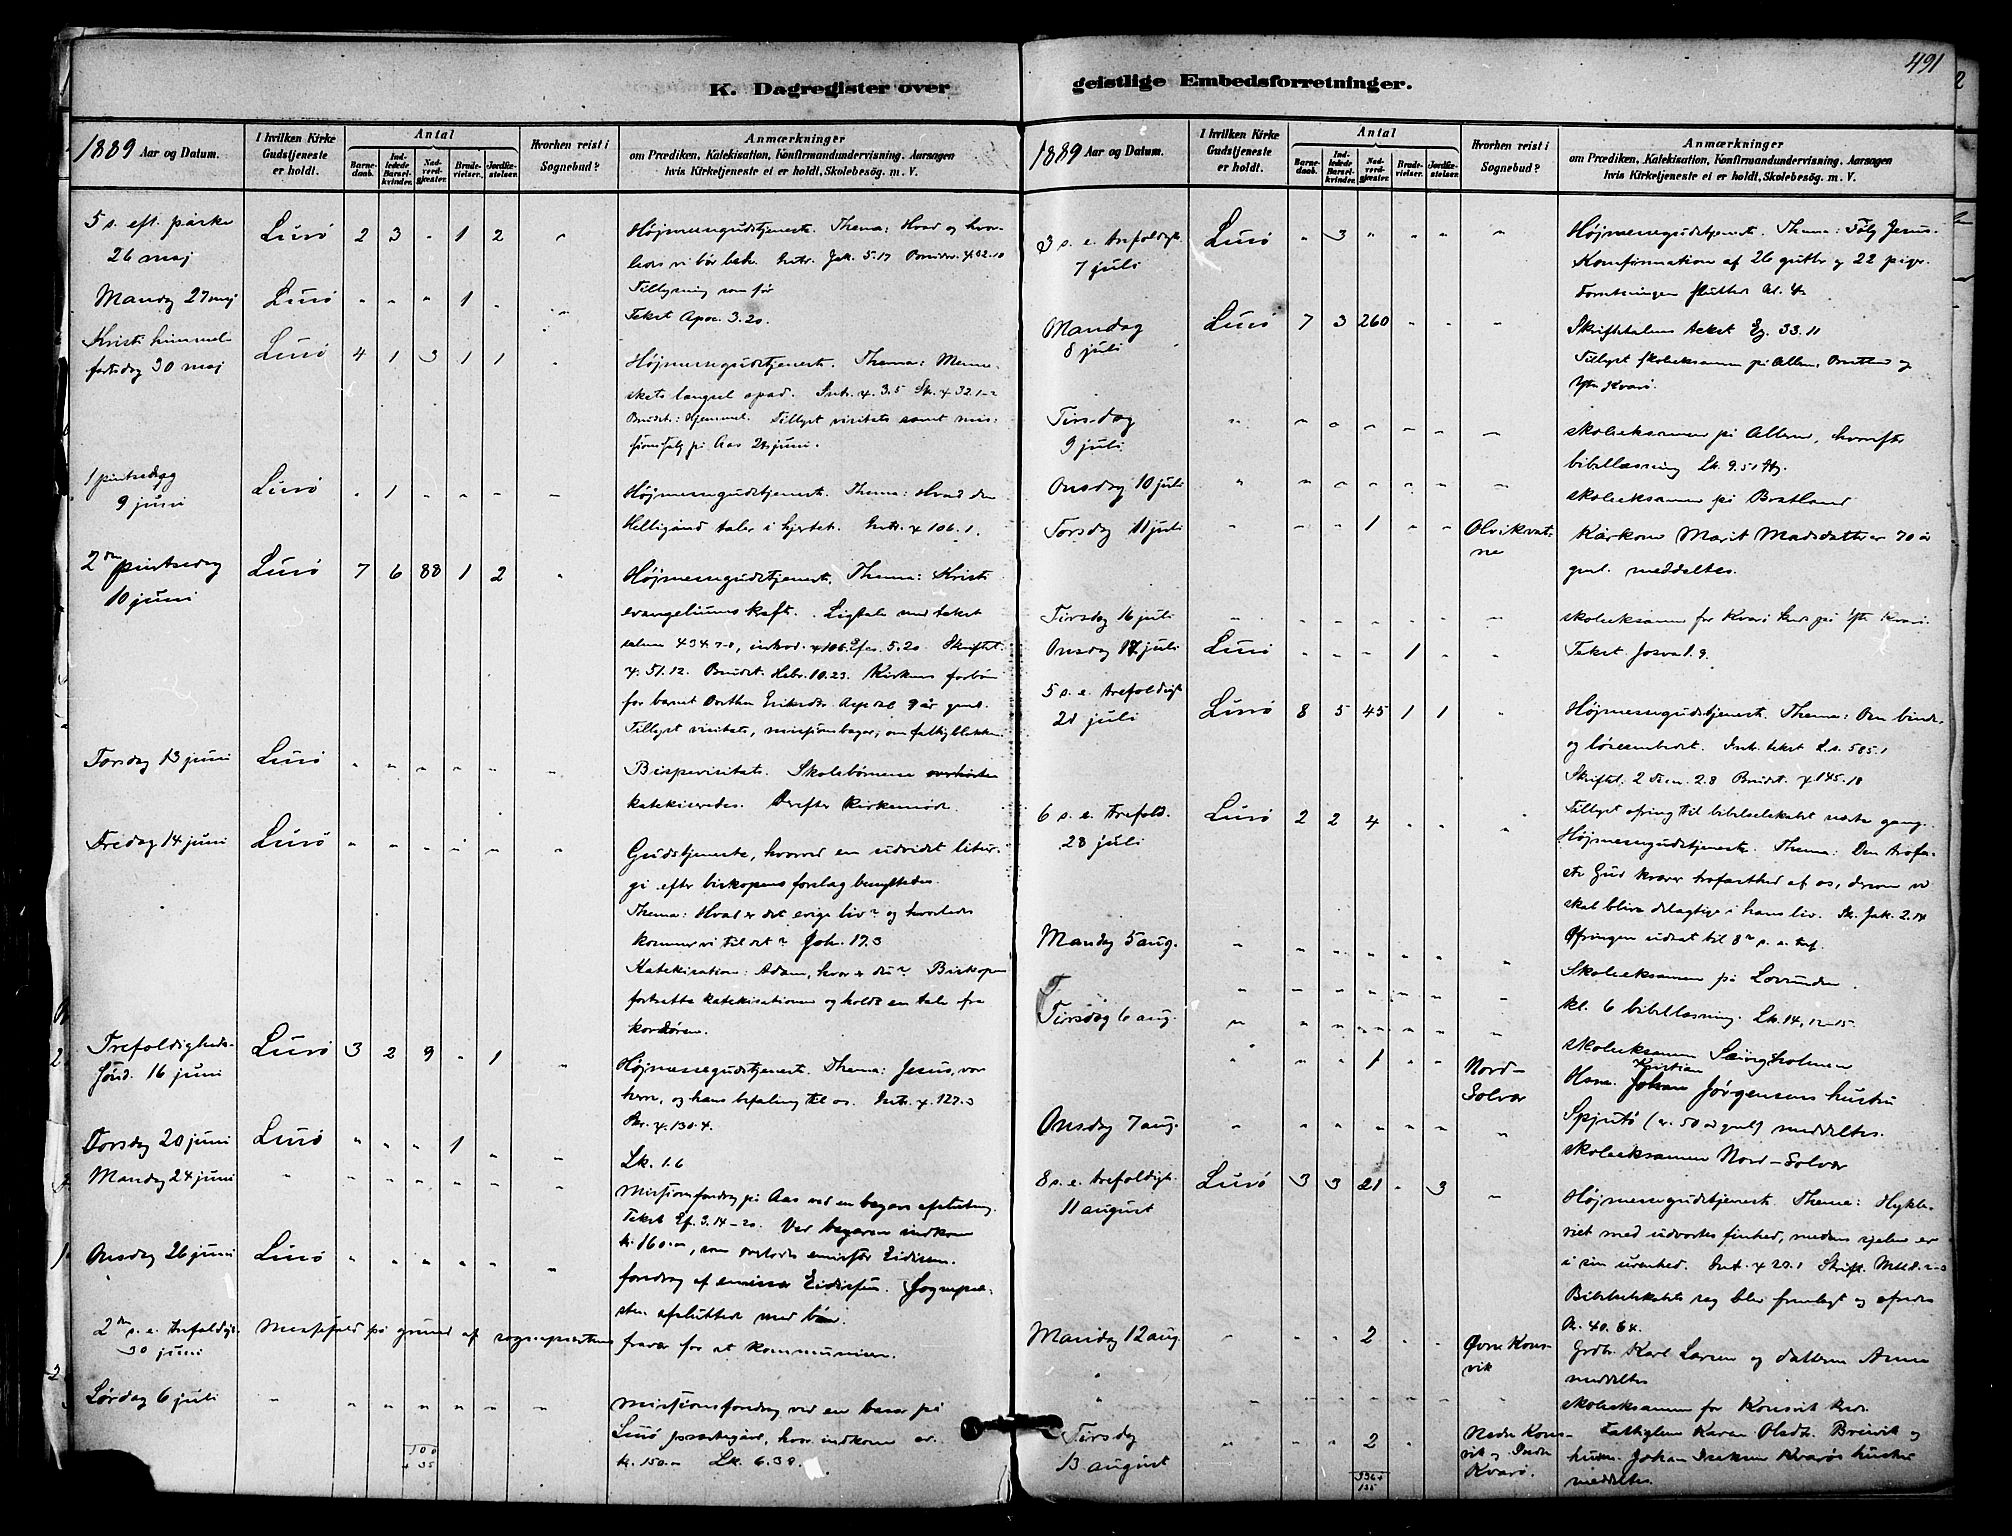 491
K. Dagregister over geistlige Embedsforretninger.
1889 Aar og Datum.
I hvilken Kirke Gudstjeneste er holdt.
Antal
Barnedaab.
Indledede Barselkvinder.
Nadverdgjæster.
Brudevielser.
Jordfæstelser.
Hvorhen reist i Sognebud?
Anmærkninger
om Prædiken, Katekisation, Konfirmandundervisning. Aarsagen
hvis Kirketjeneste ei er holdt, Skolebesøg. m. V.
5 s. eft. påske
26 maj Lurø 2 3 - 1 2 "
Højmessegudstjeneste. Thema: Hvad og hvor-
ledes vi bør bede. Intr. Jak. 5.17
Mandag 27 maj Lurø " " " 1 "
Tillysning som før
Tekst Apoc. 3.20.
Kristi himmel-
fartsdag 30 maj Lurø 4 1 3 1 1 "
Højmessegudstjeneste. Thema: Menne-
skets længsel opad. Intr. ψ. 3.5 Sk. ψ 32.1-2
Brudet.: Hjemmet. Tillyst visitats samt mis-
sjonsfælg på Aas 24 juni.
1 pintsedag
9 juni Lurø " 1 " " " "
Højmessegudstjeneste. Thema: Hvad den
Helligånd taler i hjertet. Intr. ψ 106.1.
2den pintsedag
10 juni Lurø 7 6 88 1 2 "
Højmessegudstjeneste. Thema: Kristi
evangeliums kraft. Ligtale med tekst
salme 434.7-8, indhod. ψ 106. Efes. 5.20. Skriftet.
ψ. 51.12. Brudet. Hebr. 10.23. Kirkens forbøn
for barnet Dorthea Eriksdtr. 9 år gml.
Tillyst visitats,
Torsdag 13 juni Lurø " " " " " "
Bispevisitats. Skolebørnene overhørtes
katekiseredes. Derefter kirkemøde.
Fredag 14 juni Lurø " " " " " "
Gudstjeneste, hvorved en udvidet litur-
gi efter biskopens forslag benyttedes.
Thema: Hvad er det evige liv? og hvorledes
kommer vi til det? Joh. 17.3
Katekisation: Adam, hvor er du? Biskopen
fortsatte katekisationen og holdt en tale fra
kordøren.
Trefoldigheds-
sønd. 16 juni Lurø 3 2 9 - 1 "
Højmessegudstjeneste. Thema: Jesus, vor
herre, og hans befaling til os. Intr. ψ. 127.3
Skr. ψ. 130.4.
Torsdag 20 juni Lurø " " " 1 " "
Lk. 1.6
Mandag 24 juni " " " " " " "
Missionsforedrag på Aas ved en bazars afslutning.
Tekst Ef. 3.14-20. Ved bazaren indkom
kr. 160.-, som overlodes emissær Eidissen.
Onsdag 26 juni Lurø " " " " " "
foredrag af emissær Eidissen. Sognepræ-
sten afsluttede med bøn.
2den s. e. trefoldigh.
30 juni
Messefald på grund af sognepræstens
fravær for at kommunicere.
Lørdag 6 juli " " " " " " "
missionsforedrag ved en basar på
Lurø præstegård, hvor indkom er.
kr. 150.- Lk. 6.38.
100
+ 35
1889 Aar og Datum.
I hvilken Kirke Gudstjeneste er holdt.
Antal
Barnedaab.
Indledede Barselkvinder.
Nadverdgjæster.
Brudevielser.
Jordfæstelser.
Hvorhen reist i Sognebud?
Anmærkninger
om Prædiken, Katekisation, Konfirmandundervisning. Aarsagen
hvis Kirketjeneste ei er holdt, Skolebesøg. m. V.
3 s. e. trefoldigh.
7 juli Lurø " 3 " " " "
Højmessegudstjeneste. Thema: Følg Jesus.
Konfirmation af 26 gutter og 22 piger.
Forretningen sluttede kl. 4
Mandag
8 juli Lurø 7 3 260 " " "
Skriftetalens tekst Ez. 33.11
Tillyst skoleeksamen på Alderen, Bratland og
Ytre Kvarø.
Tirsdag
9 juli " " " " " " "
skoleeksamen på Alderen, hvorefter
bibellæsning Lk. 9.51 flg.
Onsdag 10 juli " " " " " " "
skoleeksamen på Bratland
Torsdag 11 juli " " " 1 " " Olvikvat-
ne
Kårkone Marit Madsdatter 70 år
gml. meddeltes.
Tirsdag 16 juli " " " " " " "
skoleeksamen for Kvarø kreds på Ytre Kvarø.
Onsdag 17 juli Lurø " " " 1 " "
Tekst Josva 1.9.
5 s. e. trefoldigh.
21 juli Lurø 8 5 45 1 1 "
Højmessegudstjeneste. Thema: Om binde-
og løseembedet. Intr. tekst L.s. 585.1
Skriftet. 2 2.8 Brudet. ψ 145.18
Tillyst ofring til bibelselskabet næste gang.
6 s. e. trefold.
28 juli Lurø 2 2 4 " " "
Højmessegudstjeneste. Thema: Den trofa-
ste Gud kræver trofasthed af os, dersom vi
skal blive delagtige i hans liv. Sk. Jak. 2.14
Ofringen udsat til 8de s. e. tref.
Mandag 5 aug. " " " " " " "
Skoleeksamen på Lovunden.
kl. 6 bibellæsning. Lk. 14, 12-15.
Tirsdag 6 aug. " " " " " " "
skoleeksamen Selsøgholmen
" " " 1 " " Nord-
Solvær
Hsm. Kristian Johan Jørgensens hustru
Spjutø (c. 50 år gml) meddeltes.
Onsdag 7 aug. " " " " " " "
skoleeksamen Nord-Solvær
8 s. e. trefoldigh.
11 august Lurø 3 3 21 - 3 "
Højmessegudstjeneste. Thema: Hykle-
riet med udvortes finhed, medens sjelen er
i sin urenhed. Intr. ψ 20.1 Skrift.
Bibelselskabets sag blev fremlagt og ofredes
kr. 40.64.
Mandag 12 aug. " " " 2 " " Øvre Kons-
vik
Grdbr. Karl Larsen og datteren Anna
meddeltes
" " "
skoleeksamen for Konsvik kreds.
Tirsdag
13 august " " " 2 " Nedre Kons-
vik og Indre
Kvarø.
Fattiglem Karen Olsdtr. Breivik og
husm. Johan Isaksen Kvarøs hustru
meddeltes.
336+
135